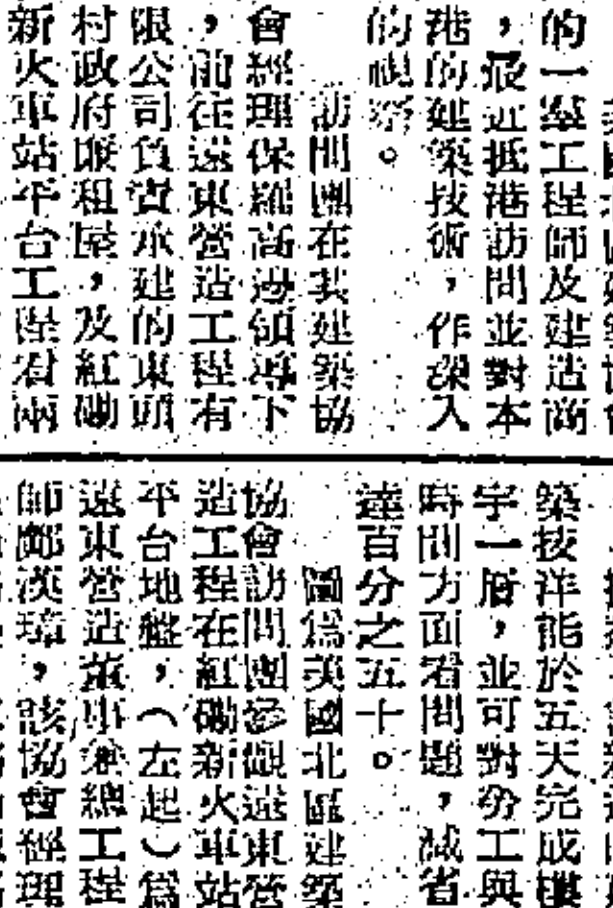 的一羣工程師及建造商
，最近抵港訪問並對本
港的建築技術，作深入
的視察。
訪問團在其建築協
會經理保羅高遜領導下
，前往遠東營造工程有
限公司負責承建的東頭
村政府廉租屋，及紅磡
新火車站平台工程看兩
築技洋能於五天完成樓
宇一層，並可對分工與
時間方面看問題，減省
達百分之五十。
圖爲美國北區建築
協會訪問團參觀遠東營
造工程在紅磡新火車站
平台地盤，（左起）爲
遠東營造董事兼總工程
師鄭漢璋，該協會經理